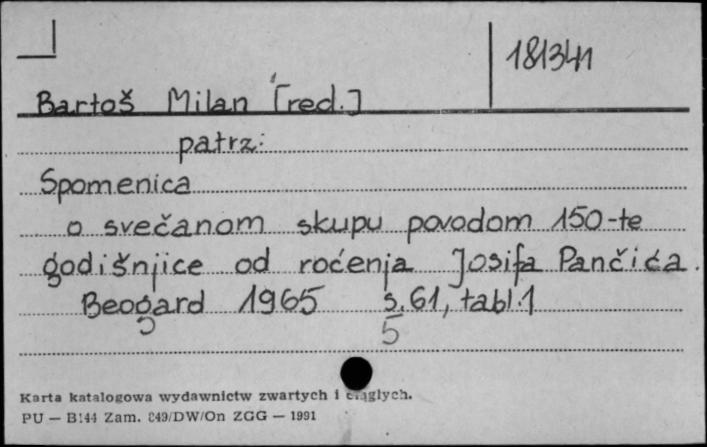 181341
Bartoš Milan [red.]
patrz:
Spomenica
o svečanom skupu povodom 150-te
godišnjice od roćenja Josifa Pančića.
Beogard 1965 s. 61, tabl. 1
5
Karta katalogowa wydawnictw zwartych i ciągłych.
PU — B144 Zam. 849/DW/On ZGG — 1991